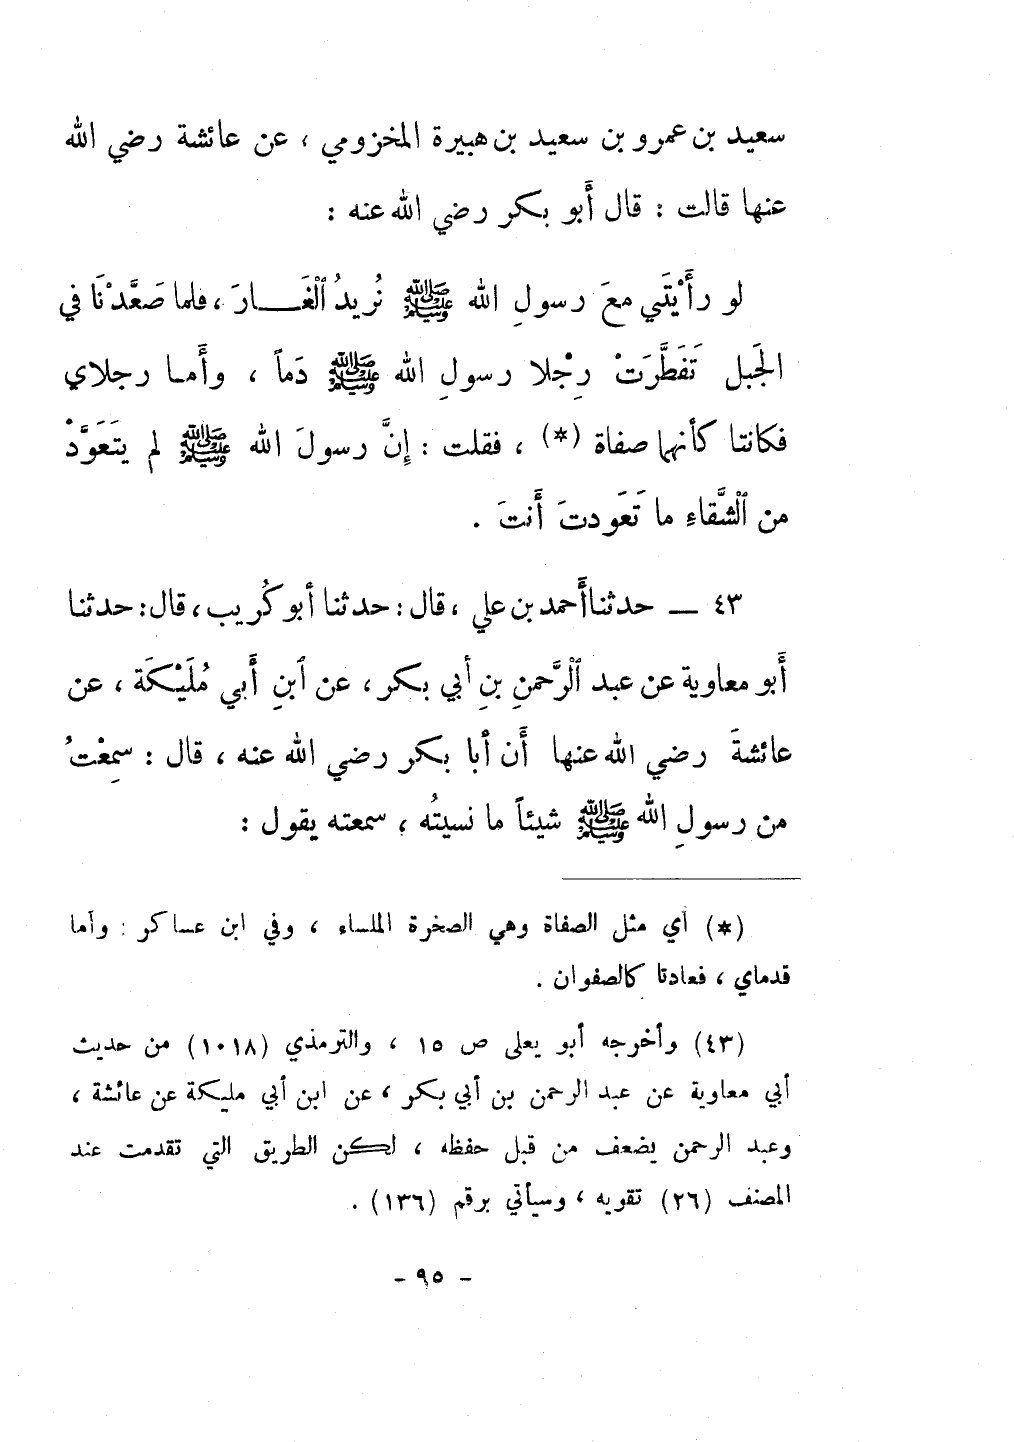 سعيد بن عمرو بن سعيد بن هبيرة المخزومي ، عن عائشة رضي الله
عنها قالت : قال أَبو بكر رضي الله عنه :
لو رأَيْتَني معَ رسولِ الله ﷺ نُريدُ ٱلْغَـــارَ ، فلما صَعَّدْنَا في
الجَبل تَفَطَّرَتْ رِجْلا رسولِ الله ﷺ دَماً ، وأَمـا رجلاي
فكانتا كأنهما صفاة (*) ، فقلت : إِنَّ رسولَ الله ﷺ لم يتَعَوَّدْ
من ٱلشَّقاءِ ما تَعَودتَ أَنتَ .
٤٣ ــ حدثنا أَحمد بن علي ، قال : حدثنا أبو كُريب ، قال : حدثنا
أَبو معاوية عن عبد ٱلرَّحمنِ بنِ أبي بكر ، عن ٱبنِ أَبي مُلَيْكَة ، عن
عائشةَ رضي الله عنها أَن أبا بكر رضي الله عنه ، قال : سمِعْتُ
من رسولِ الله ﷺ شيئاً ما نسيتُه ، سمعته يقول :
(*) أي مثل الصفاة وهي الصخرة الملساء ، وفي ابن عساكر : وأما
قدماي ، فعادتا كالصفوان .
(٤٣) وأخرجه أبو يعلى ص ١٥ ، والترمذي (١٠١٨) من حديث
أبي معاوية عن عبد الرحمن بن أبي بكر ، عن ابن أبي مليكة عن عائشة ،
وعبد الرحمن يضعف من قبل حفظه ، لكن الطريق التي تقدمت عند
المصنف (٢٦) تقويه ، وسيأتي برقم (١٣٦) .
- ٩٥ -